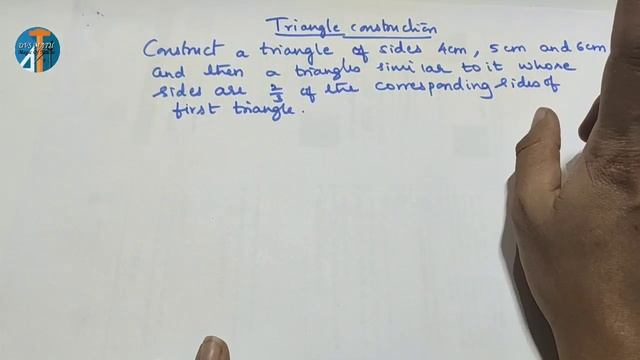 Triangle construction
Construct a triangle of sides 4cm, 5cm and 6cm
and then a triangle similar to it whose
sides are 2/3 of the corresponding sides of
first triangle.